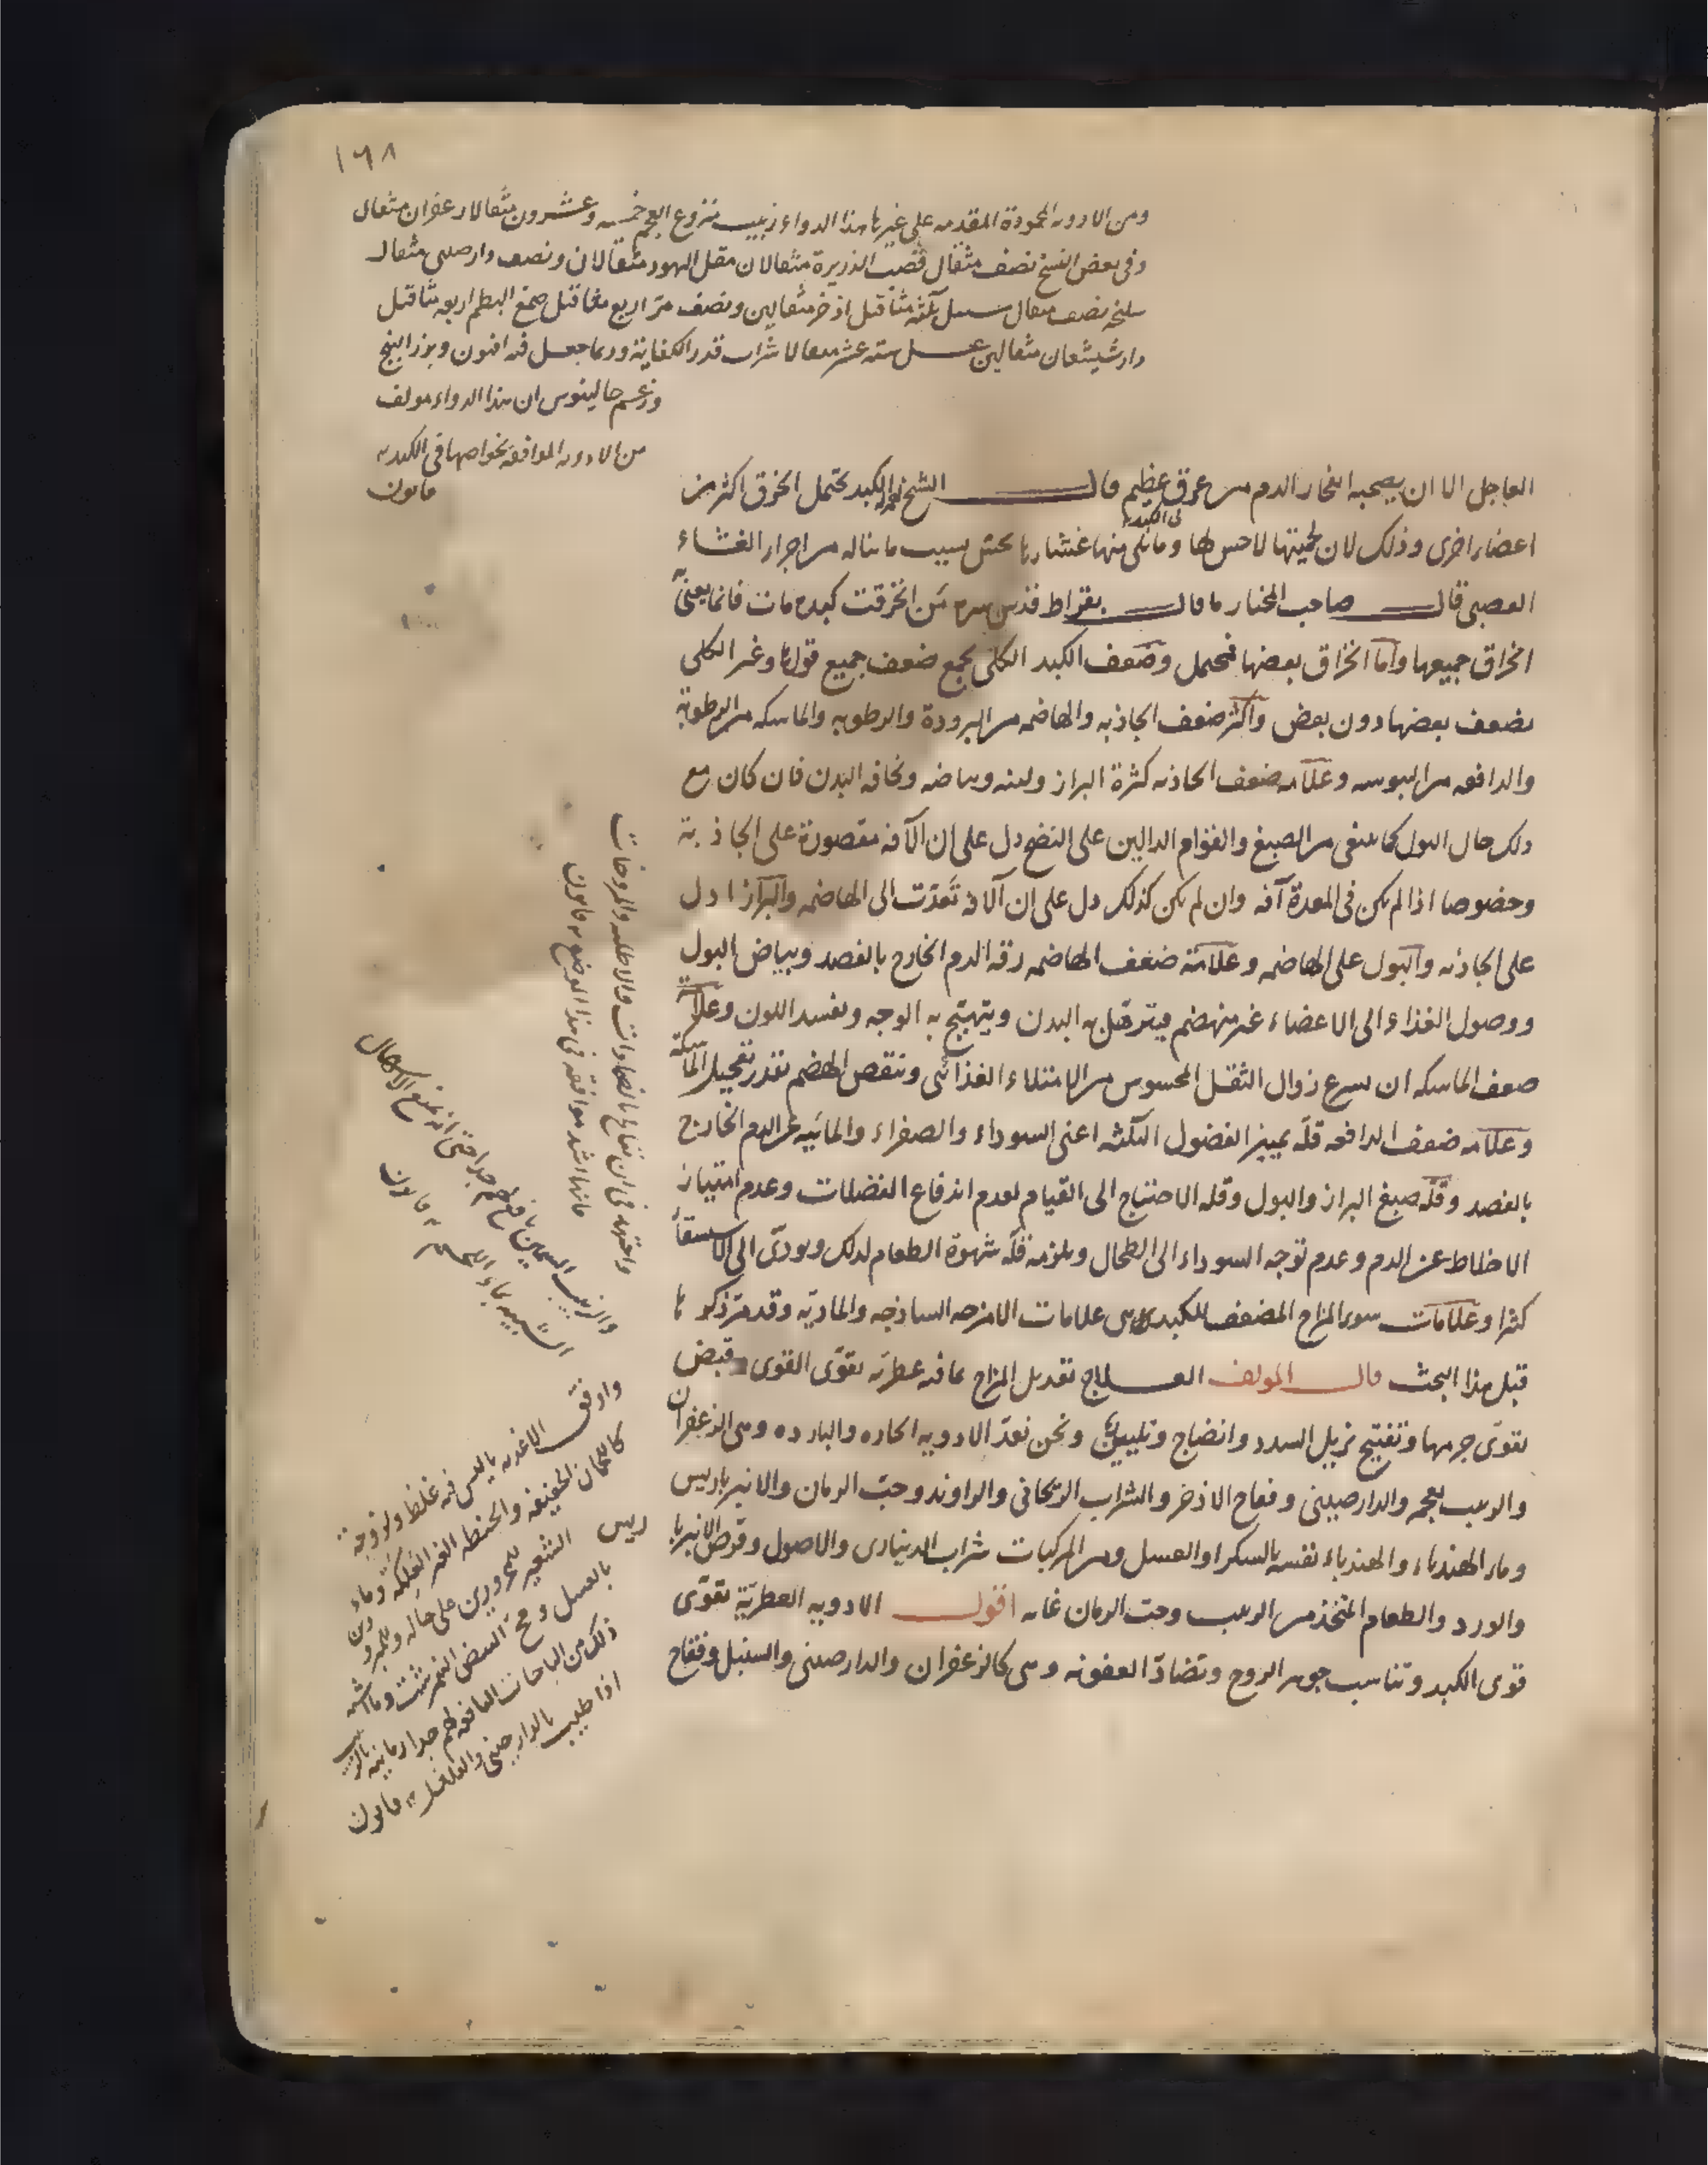 ١٦٨
ومن الادويه المحمودة المقدمه على غيرها هذا الدواء زبيب منزوع العجم خمسه وعشرون مثقالا زعفران مثقال
وفى بعض النسخ نصف مثقال قصب الذريرة مثقالان مقل اليهود مثقالان ونصف دارصينى مثقال
سليخه نصف مثقال سنبل ثلثه مثاقيل اذخر مثقالين ونصف مر اربع مثاقيل صمغ البطم اربعه مثاقيل
دارشيشعان مثقالين عسل سته عشر مثقالا شراب قدر الكفاية وربما جعل فيه افيون وبزر البنج
وزعم جالينوس ان هذا الدواء مولف
من الادويه الموافقه بخواصها فى الكبد
قانون
العاجل الا ان يصحبه انفجار الدم من عرق عظيم قال الشيخ الكبد تحتمل الخرق اكثر من
اعضاء اخرى وذلك لان لحميتها لاحس لها وما يلى منها غشاء ها يحس بسبب ما يناله من اجزاء الغشاء
العصبى قال صاحب المختار ما قال بقراط قدس سره من انخرقت كبده مات فانما يعنى
انخراق جميعها واما انخراق بعضها فيحتمل وضعف الكبد الكلى يجمع ضعف جميع قواها وغير الكلى
بضعف بعضها دون بعض واكثر ضعف الجاذبه والهاضمه من البرودة والرطوبه والماسكه من الرطوبة
والدافعه من اليبوسه وعلامه ضعف الجاذبه كثرة البراز ولينه وبياضه ونحافه البدن فان كان مع
ذلك حال البول كما ينبغى من الصبغ والقوام الدالين على النضج دل على ان الآفه مقصورة على الجاذبة
وخصوصا اذا لم يكن فى المعدة آفه وان لم يكن كذلك دل على ان الآفه تعدت الى الهاضمه والبراز ادل
على الجاذبه والبول على الهاضمه وعلامة ضعف الهاضمه رقه الدم الخارج بالفصد وبياض البول
ووصول الغذاء الى الاعضاء غير منهضم فيترهل به البدن ويتهيج به الوجه ويفسد اللون وعلامة
ضعف الماسكه ان يسرع زوال الثقل المحسوس من الامتلاء الغذائى وينقص الهضم بقدر تعجيل الماسكة
وعلامه ضعف الدافعه قله تمييز الفضول الثلثه اعنى السوداء والصفراء والمائيه عن الدم الخارج
بالفصد وقله صبغ البراز والبول وقله الاحتياج الى القيام لعدم اندفاع الفضلات وعدم امتياز
الاخلاط عن الدم وعدم توجه السوداء الى الطحال ويلزمه قله شهوة الطعام لذلك ويودى الى الاستسقاء
كثيرا وعلامات سوء المزاج المضعف للكبد هى علامات الامزجه الساذجه والماديه وقد مر ذكرها
قبل هذا البحث قال المولف العلاج تعديل المزاج بما فيه عطريه تقوى القوى وقبض
يقوى جرمها وتفتيح يزيل السدد وانضاج وتليين ونحن نعد الادويه الحاره والبارده وهى الزعفران
والزبيب بعجمه والدارصينى وفقاح الاذخر والشراب الريحانى والراوند وحب الرمان والانبرباريس
وماء الهندباء والهندباء نفسه بالسكر او العسل ومن المركبات شراب الدينارى والاصول وقرص الانبربا
ريس
والورد والطعام المتخذ من الزبيب وحب الرمان غايه اقول الادويه العطرية تقوى
قوى الكبد وتناسب جوهر الروح وتضاد العفونه وهى كالزعفران والدارصينى والسنبل وفقاح
واجتهد فى ان تعالج بالضمادات والاطليه والمروخات
فانها اشد موافقه فى هذا الموضع قانون
والزبيب السمين نافع لهم جدا حتى انه يمنع الاسهال
الشبيه بماء اللحم قانون
واوفق الاغذيه ما ليس فيه غلظ ولزوجة
كاللحمان الخفيفه والحنطه الغير العلكه وماء
الشعير للمحرورين على حاله وللمبرودين
بالعسل ومح البيض النمرشت وما اشبه
ذلك من الباجات النافعه لهم جدا رمانيه بالزبيب
اذا طيب بالدارصينى والفلفل قانون